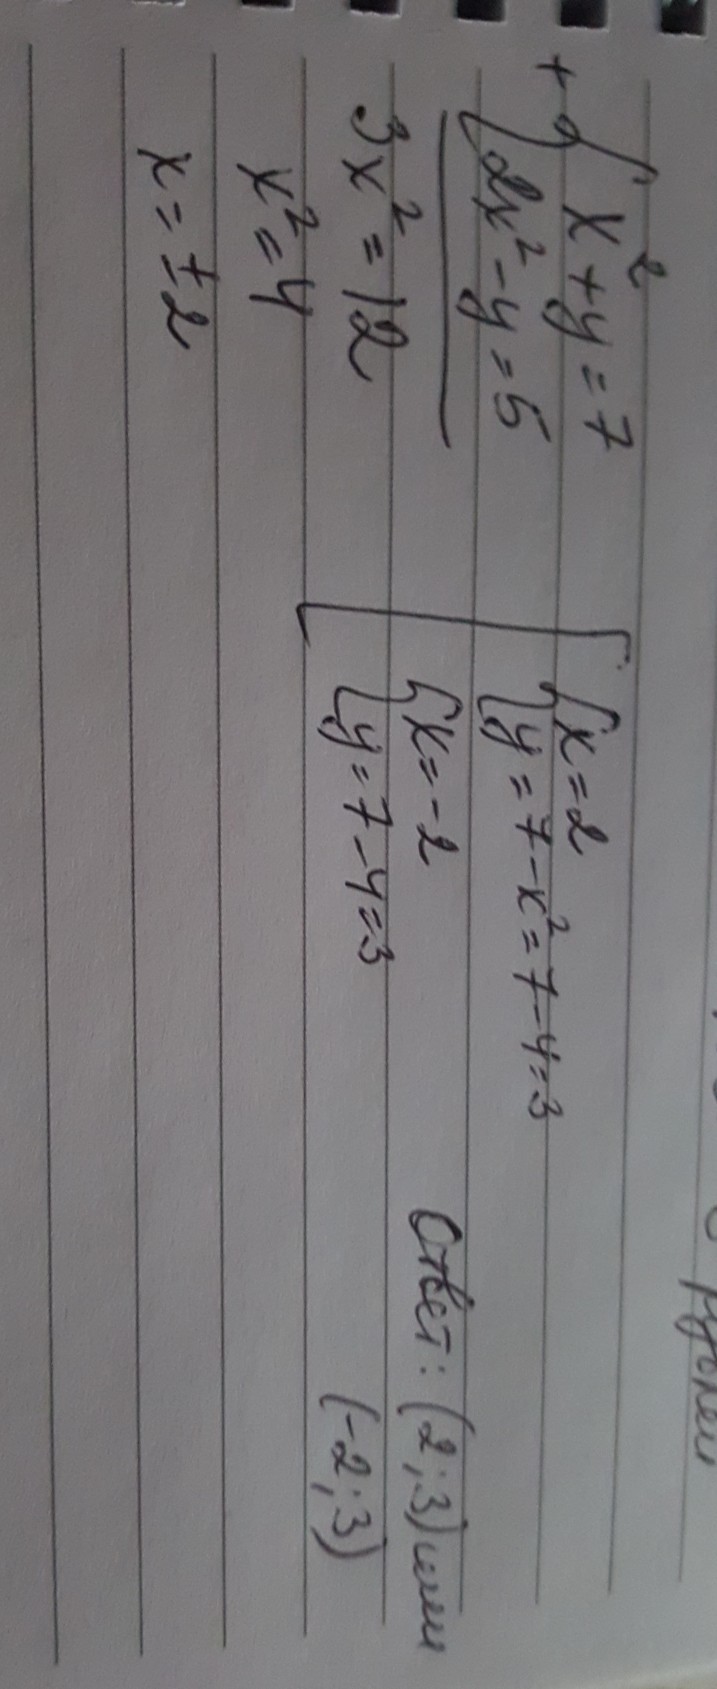 + { x² + y = 7
2x² - y = 5
3x² = 12
x² = 4
x = ± 2
[ { x = 2
y = 7 - x² = 7 - 4 = 3
{ x = -2
y = 7 - 4 = 3
Ответ: (2; 3) или
(-2; 3)